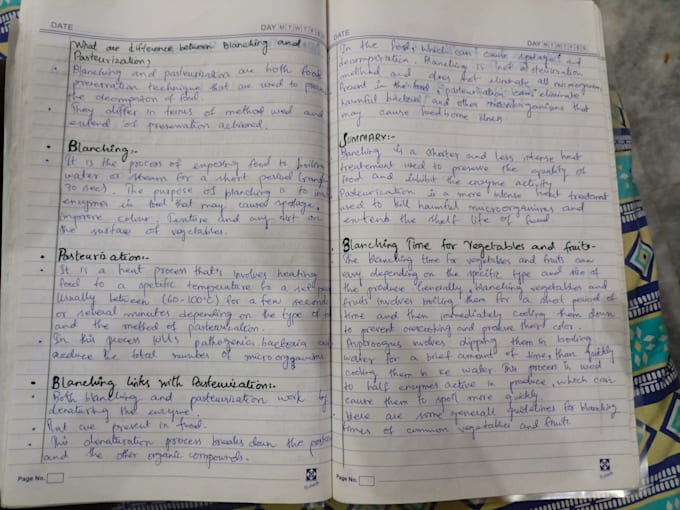 DATE
DAY M T W T F S S
What are difference between Blanching and
Pasteurization?
Blanching and pasteurization are both food
preservation technique that are used to
the decompositon of food.
They differ in terms of method used and
extend of preservation achieved.
Blanching:-
It is the process of exposing food to boiling
water or steam for a short period
30 sec). The purpose of blanching is to
enzymes in food that may caused spoilage,
improve colour, texture and any dirt on
the surface of vegetables.
Pasteurisation:-
It is a heat process that's involves heating
food to a spetific temperature for a set
Usually between (60-100°c) for a few seconds
or several minutes depending on the type of
and the method of pasteurisation.
In this process kills pathogenic bacteria
reduce the total number of microorganisms.
Blanching links with Pasteurization:-
Both blanching and pasteurization work by
denaturing the enzyme.
That are present in food.
This denaturation process breaks down the
and the other organic compounds.
Page No.
DATE
DAY M T W T F S S
In the food, which can cause spoilage and
decomposition. Blanching is not a sterilization
method and does not eliminate all microorganism
Present in the food, pasteurization can eliminate
harmful bacteria and other microorganisms that
may cause food borne illness
SUMMARY:-
Blanching is a shorter and less intense heat
treatement used to preserve the quality of
food and inhibit the enzyme activity.
Pasteurization is a more intense heat treatment
used to kill harmful microorganisms and
extend the shelf life of food
Blanching Time for Vegetables and fruits-
The blanching time for vegetables and fruits can
vary depending on the specific type and size of
the produce Generally, blanching vegetables and
fruits involves boiling them for a short period of
time and then immediately cooling them down
to prevent overcooking and their color.
involves dipping them in boiling
water for a brief amount of time, than quickly
cooling them in ice water. This process is used
to half enzymes active in produce, which can
cause them to spoil more quickly.
Here are some generall guidelines for blanching
times of common vegetables and fruits.
Page No.